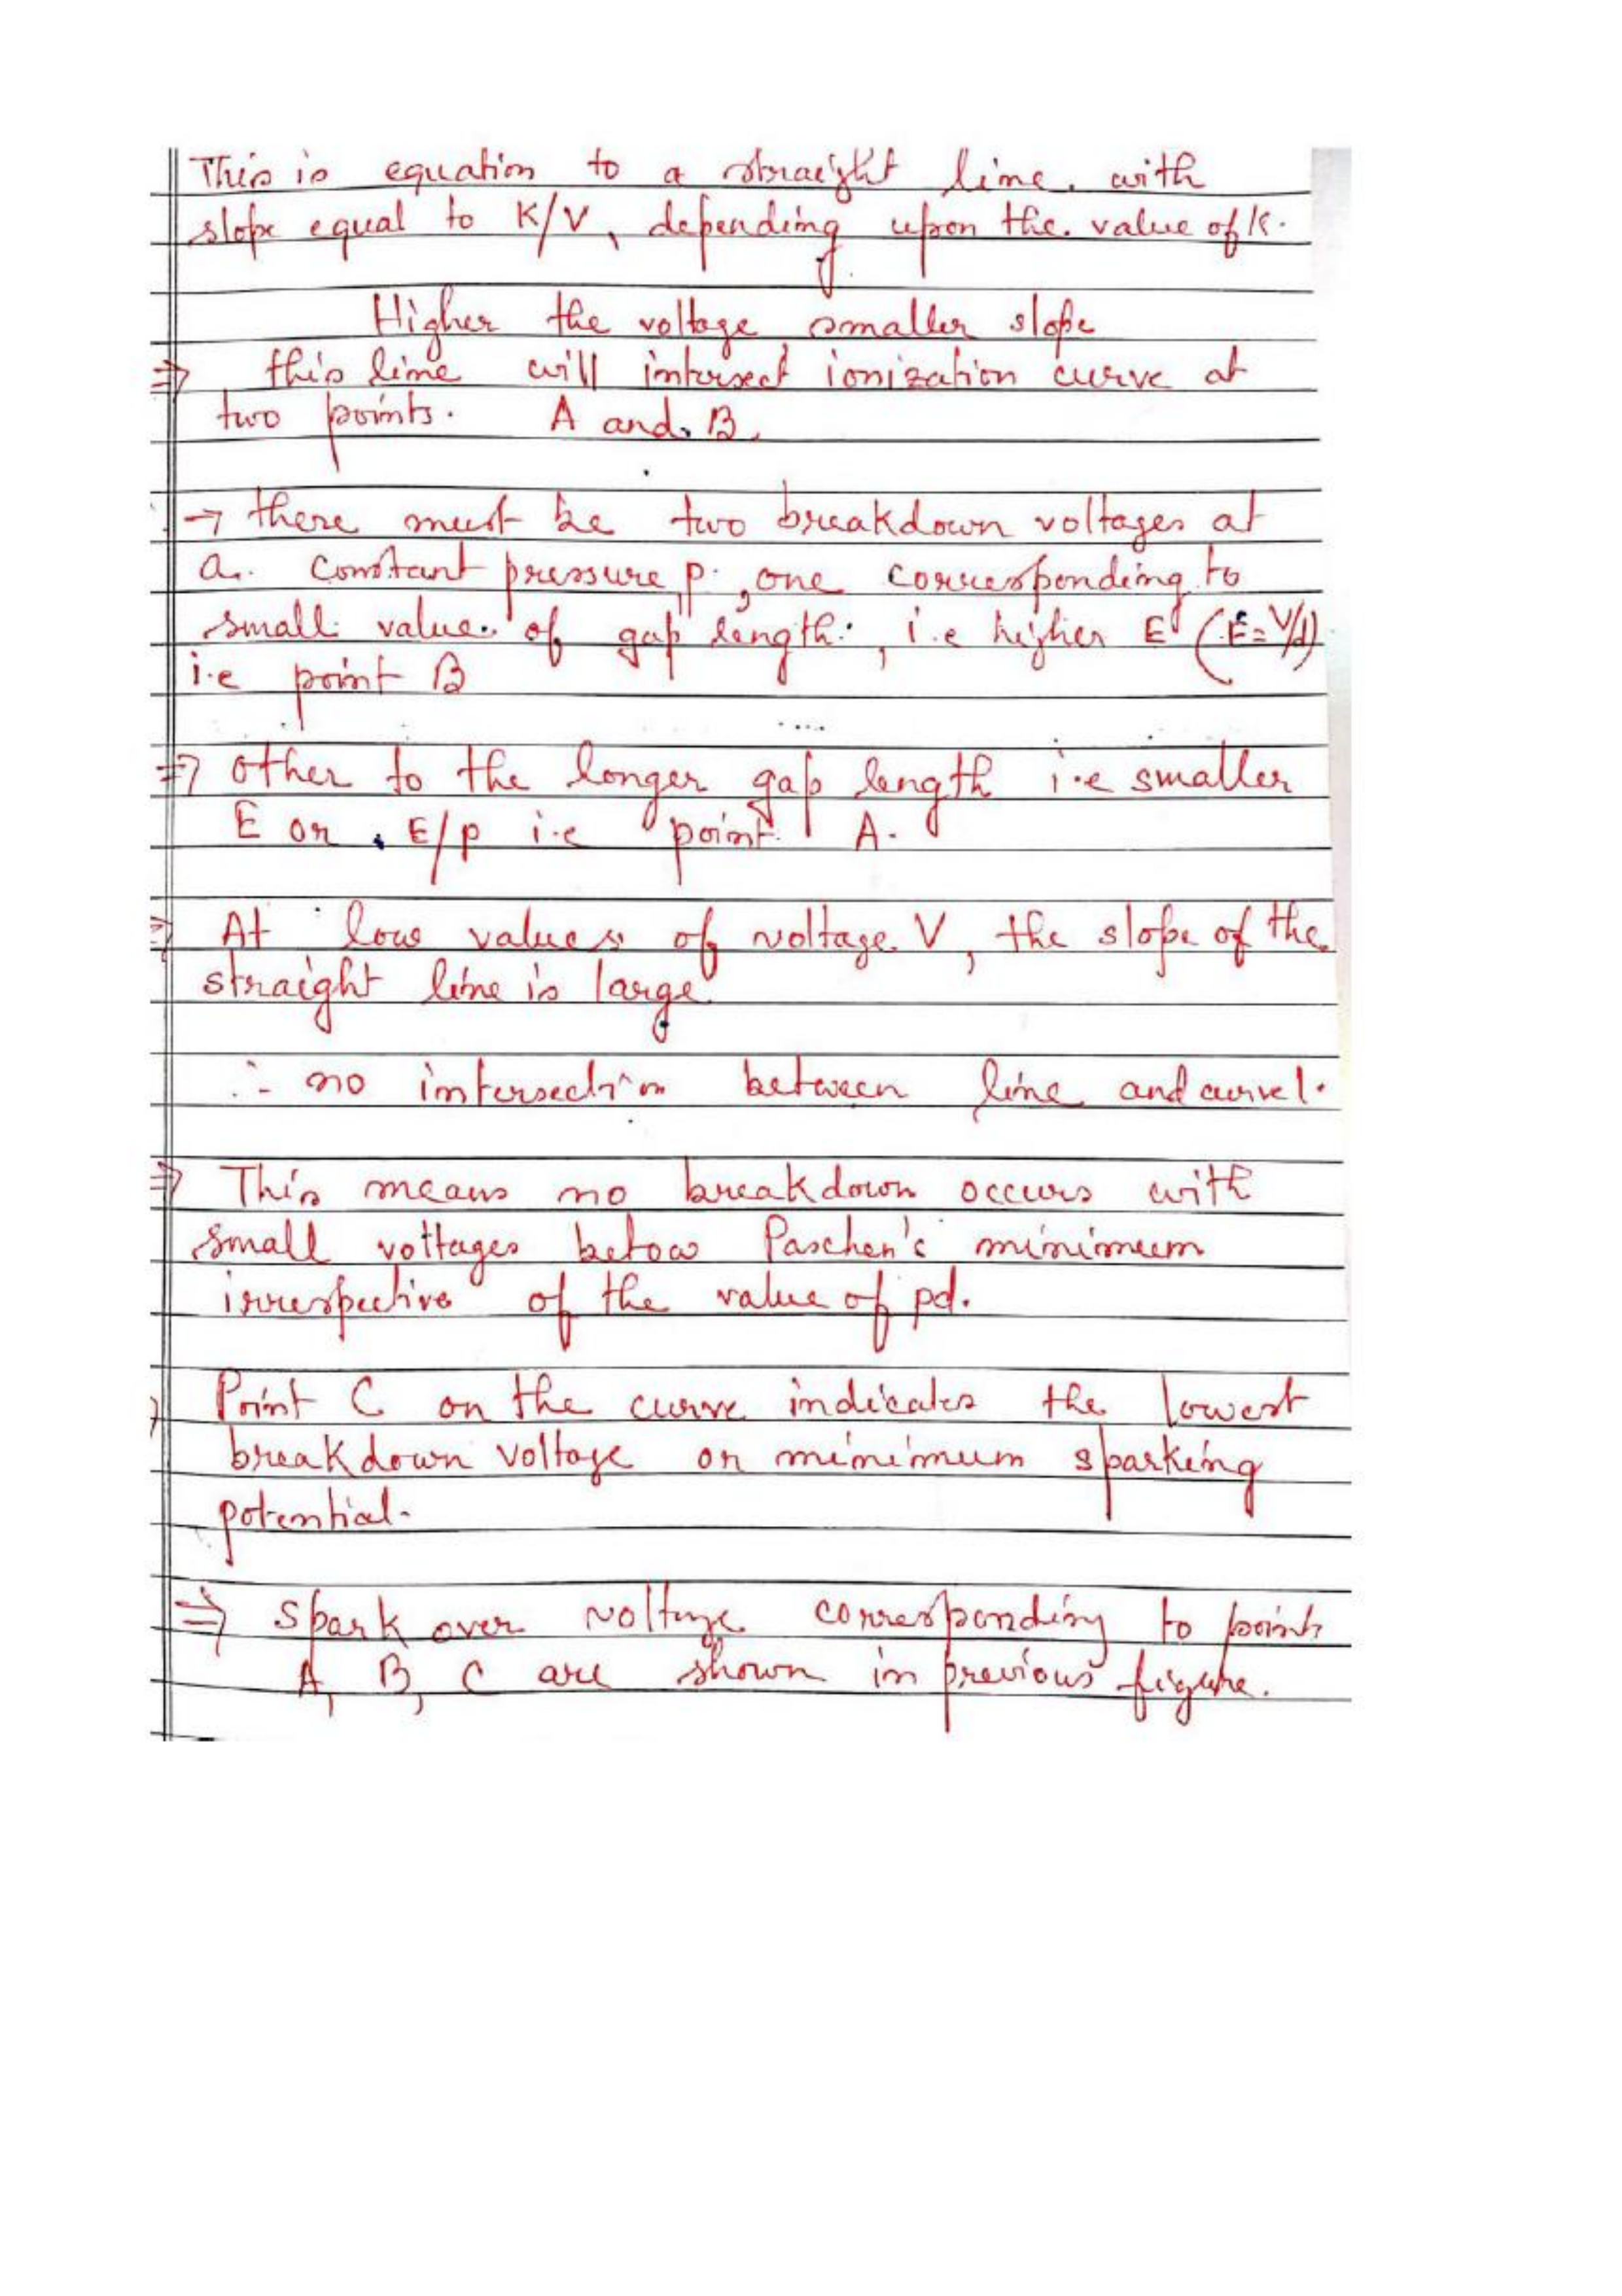 This is equation to a straight line with
slope equal to K/V, depending upon the value of K.
Higher the voltage smaller slope
⇒ this line will intersect ionization curve at
two points. A and B.
→ there must be two breakdown voltages at
a constant pressure "p", one corresponding to
small value of gap length, i.e higher E (E=V/d)
i.e point B
⇒ other to the longer gap length i.e smaller
E or E/p i.e point A.
⇒ At low values of voltage V, the slope of the
straight line is large
∴ no intersection between line and curve 1.
⇒ This means no breakdown occurs with
small voltages below Paschen's minimum
irrespective of the value of pd.
⇒ Point C on the curve indicates the lowest
breakdown voltage or minimum sparking
potential.
⇒ spark over voltage corresponding to points
A, B, C are shown in previous figure.